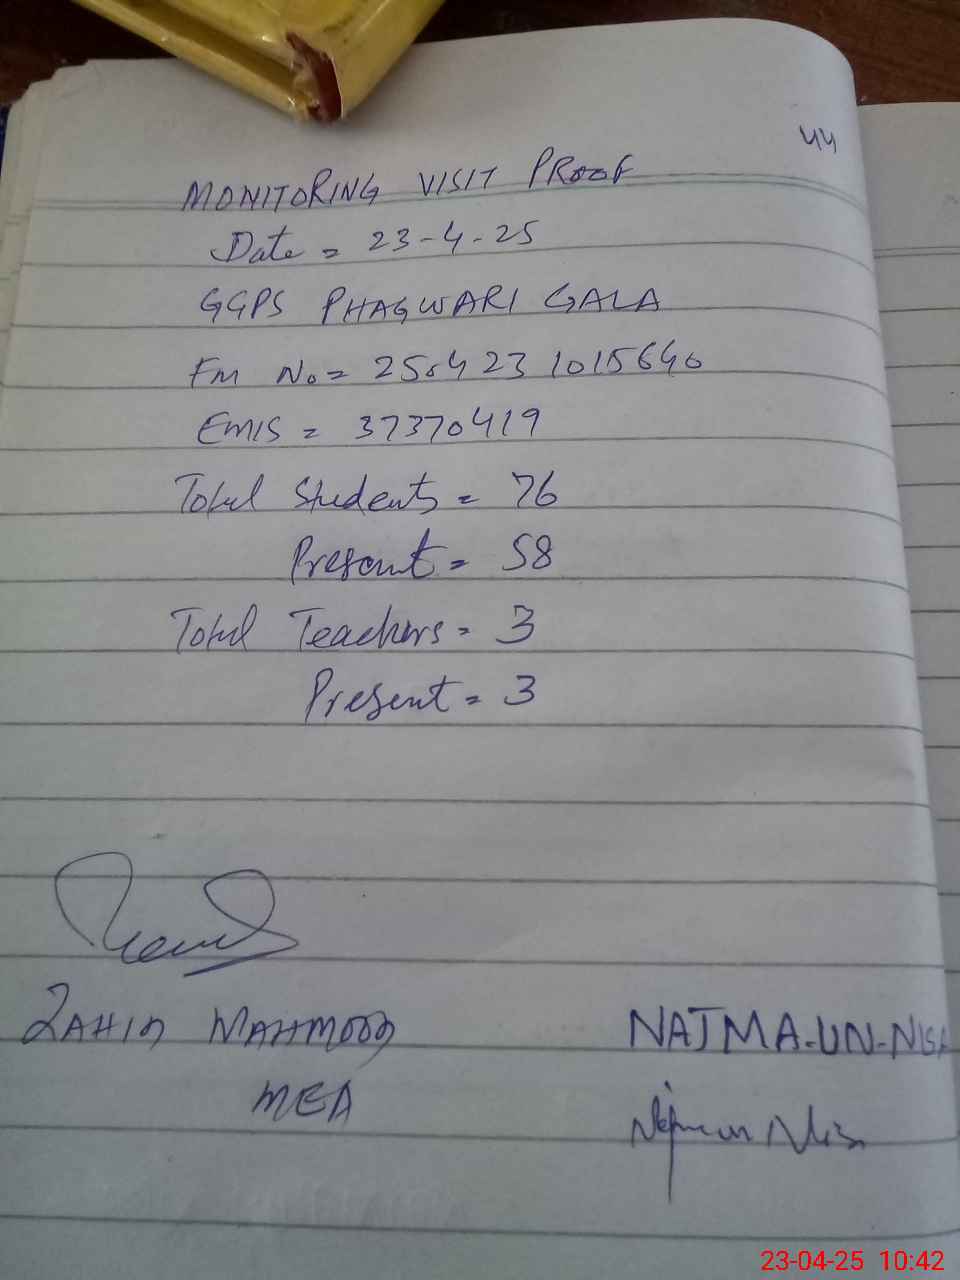 44
MONITORING VISIT PROOF
Date = 23-4-25
GGPS PHAGWARI GALA
Fm No = 250423 1015640
EMIS = 37370419
Total Students = 76
Present = 58
Total Teachers = 3
Present = 3
ZAHID MAHMOOD
NAJMA-UN-NISA
MEA
23-04-25 10:42